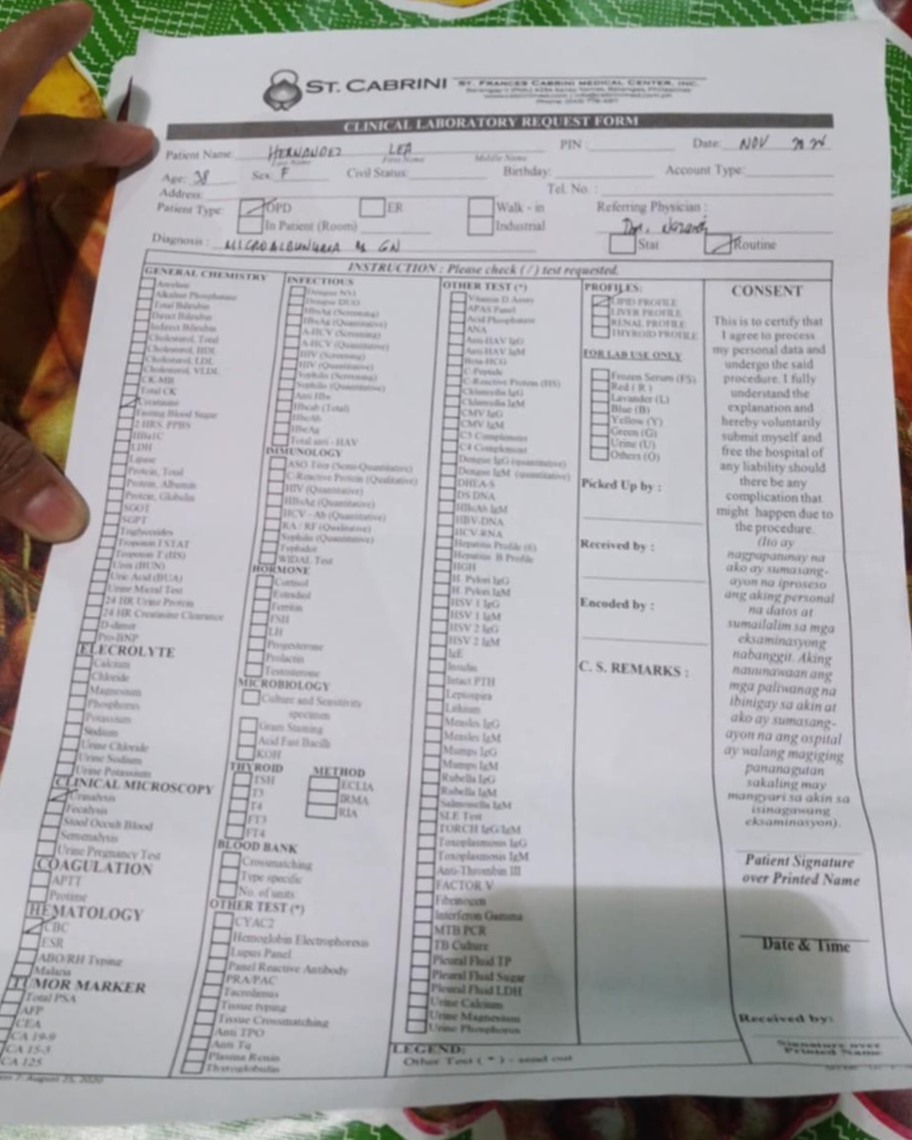 ST. CABRINI ST. FRANCES CABRINI MEDICAL CENTER, INC.
CLINICAL LABORATORY REQUEST FORM
Patient Name: HERNANDEZ LEA PIN : Date: NOV
Last Name First Name Middle Name
Age: 38 Sex: F Civil Status: Birthday: Account Type:
Address: Tel. No. :
Patient Type: OPD ER Walk - in Referring Physician :
In Patient (Room) Industrial
Diagnosis : GN Stat Routine
INSTRUCTION : Please check ( / ) test requested.
GENERAL CHEMISTRY
Amylase
Alkaline Phosphatase
Total Bilirubin
Direct Bilirubin
Indirect Bilirubin
Cholesterol, Total
Cholesterol, HDL
Cholesterol, LDL
Cholesterol, VLDL
CK-MB
Total CK
Creatinine
Fasting Blood Sugar
2 HRS. PPBS
HBa1C
LDH
Lipase
Protein, Total
Protein, Albumin
Protein, Globulin
SGOT
SGPT
Triglycerides
Troponin I STAT
Troponin T (HS)
Urea (BUN)
Uric Acid (BUA)
Urine Micral Test
24 HR Urine Protein
24 HR Creatinine Clearance
D-dimer
Pro-BNP
ELECROLYTE
Calcium
Chloride
Magnesium
Phosphorus
Potassium
Sodium
Urine Chloride
Urine Sodium
Urine Potassium
CLINICAL MICROSCOPY
Urinalysis
Fecalysis
Stool Occult Blood
Semenalysis
Urine Pregnancy Test
COAGULATION
APTT
Protime
HEMATOLOGY
CBC
ESR
ABO/RH Typing
Malaria
TUMOR MARKER
Total PSA
AFP
CEA
CA 19-9
CA 15-3
CA 125
INFECTIOUS
Dengue NS1
Dengue DUO
HBsAg (Screening)
HBsAg (Quantitative)
A-HCV (Screening)
A-HCV (Quantitative)
HIV (Screening)
HIV (Quantitative)
Syphilis (Screening)
Syphilis (Quantitative)
Anti HBs
HBcab (Total)
HBeAb
HBeAg
Total anti - HAV
IMMUNOLOGY
ASO Titer (Semi-Quantitative)
C-Reactive Protein (Qualitative)
HIV (Quantitative)
HBsAg (Quantitative)
HCV - Ab (Quantitative)
RA / RF (Qualitative)
Syphilis (Quantitative)
Typhidot
WIDAL Test
HORMONE
Cortisol
Estradiol
Ferritin
FSH
LH
Progesterone
Prolactin
Testosterone
MICROBIOLOGY
Culture and Sensitivity
specimen
Gram Staining
Acid Fast Bacilli
KOH
THYROID METHOD
TSH ECLIA
T3 IRMA
T4 RIA
FT3
FT4
BLOOD BANK
Crossmatching
Type specific
No. of units
OTHER TEST (*)
CYAC2
Hemoglobin Electrophoresis
Lupus Panel
Panel Reactive Antibody
PRA/PAC
Tacrolimus
Tissue typing
Tissue Crossmatching
Anti TPO
Anti Tg
Plasma Renin
Thyroglobulin
OTHER TEST (*)
Vitamin D Assay
APAS Panel
Acid Phosphatase
ANA
Anti-HAV IgG
Anti-HAV IgM
Beta-HCG
C-Peptide
C-Reactive Protein (HS)
Chlamydia IgG
Chlamydia IgM
CMV IgG
CMV IgM
C3 Complement
C4 Complement
Dengue IgG (quantitative)
Dengue IgM (quantitative)
DHEA-S
DS DNA
HBcAb IgM
HBV-DNA
HCV-RNA
Hepatitis Profile (6)
Hepatitis B Profile
HGH
H. Pylori IgG
H. Pylori IgM
HSV 1 IgG
HSV 1 IgM
HSV 2 IgG
HSV 2 IgM
IgE
Insulin
Intact PTH
Leptospira
Lithium
Measles IgG
Measles IgM
Mumps IgG
Mumps IgM
Rubella IgG
Rubella IgM
Salmonella IgM
SLE Test
TORCH IgG/IgM
Toxoplasmosis IgG
Toxoplasmosis IgM
Anti-Thrombin III
FACTOR V
Fibrinogen
Interferon Gamma
MTB PCR
TB Culture
Pleural Fluid TP
Pleural Fluid Sugar
Pleural Fluid LDH
Urine Calcium
Urine Magnesium
Urine Phosphorus
LEGEND:
Other Test ( * ) - send out
PROFILES:
LIPID PROFILE
LIVER PROFILE
RENAL PROFILE
THYROID PROFILE
FOR LAB USE ONLY
Frozen Serum (FS)
Red ( R )
Lavander (L)
Blue (B)
Yellow (Y)
Green (G)
Urine (U)
Others (O)
Picked Up by :
Received by :
Encoded by :
C. S. REMARKS :
CONSENT
This is to certify that
I agree to process
my personal data and
undergo the said
procedure. I fully
understand the
explanation and
hereby voluntarily
submit myself and
free the hospital of
any liability should
there be any
complication that
might happen due to
the procedure.
(Ito ay
nagpapatunay na
ako ay sumasang-
ayon na iproseso
ang aking personal
na datos at
sumailalim sa mga
eksaminasyong
nabanggit. Aking
nauunawaan ang
mga paliwanag na
ibinigay sa akin at
ako ay sumasang-
ayon na ang ospital
ay walang magiging
pananagutan
sakaling may
mangyari sa akin sa
isinagawang
eksaminasyon).
Patient Signature
over Printed Name
Date & Time
Received by:
Signature over
Printed Name
August 25, 2020